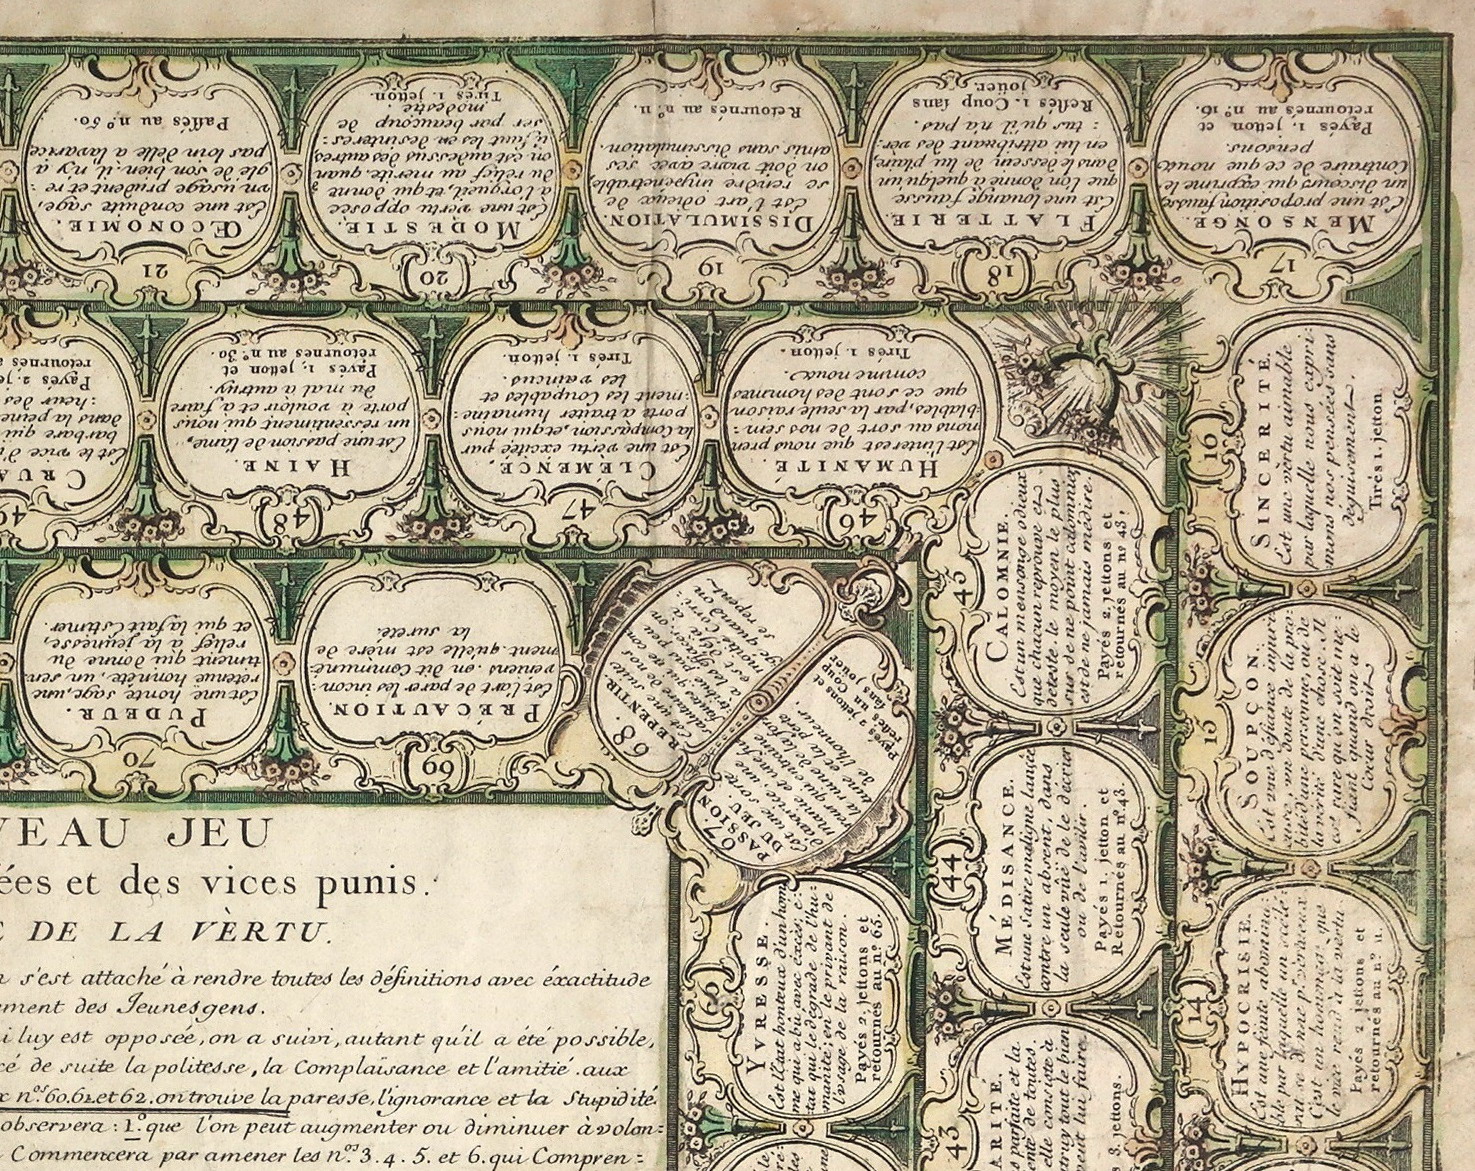 17
MENSONGE.
Est une proposition fausse,
un discours qui exprime le
Contraire de ce que nous
pensons.
Payés 1. jetton et
retournés au n.º 16.
18
FLATTERIE.
Est une louange fausse
que l'on donne à quelqu'un
dans le dessein de lui plaire,
en lui attribuant des ver:
:tus qu'il n'a pas.
Restés 1. Coup sans
joüer.
19
DISSIMULATION.
Est l'art odieux de
se rendre impénétrable,
on doit vivre avec ses
amis sans dissimulation.
Retournés au n.º 11.
20
MODESTIE.
Est une vertu opposée
à l'orgueil, et qui donne
du relief au mérite, quan
on est au dessus des autres
il faut les en desinteres:
:ser par beaucoup de
modestie
Tirés 1. jetton.
21
ŒCONOMIE.
Est une conduite sage,
un usage prudent et re:
:glé de son bien; il n'y a
pas loin d'elle a l'avarice
Passés au n.º 50.
16
SINCERITÉ.
Est une vertu aimable
par laquelle nous expri:
mons nos pensées sans
déguisement.
Tirés 1. jetton.
15
SOUPÇON.
Est une défiance injuri
euse, un doute de la pro:
bité d'une personne, ou de
la vérité d'une chose. Il
est rare qu'on soit mé:
fiant quand on a le
Coeur droit.
14
HYPOCRISIE.
Est une feinte abomina:
ble par laquelle un scélé:
rat se donne p.r vèrtueux
C'est un homage que
le vice rend à la vèrtu.
Payés 2. jettons et
retournés au n.º 11.
46
HUMANITÉ.
Est l'interest que nous pren
nons au sort de nos sem:
:blables, par la seule raison
que ce sont des hommes
comme nous.
Tirés 1. jetton.
47
CLEMENCE,
Est une vèrtu excitée par
la Compassion, et qui nous
porte a traiter humaine:
:ment les Coupables et
les vaincus.
Tirés 1. jetton.
48
HAINE.
C'est une passion de l'ame,
un ressentiment qui nous
porte à vouloir et à faire
du mal à autruy.
Payés 1. jetton et
retournés au n.º 30.
49
CRUA
Est le vice d'u
barbare qui
dans la peine
:heur des
Payés 2. je
retournés a
45
CALOMNIE.
Est un mensonge odieux
que chacun reprouve et
deteste. le moyen le plus
sur de ne point calomnier
est de ne jamais médire.
Payés 2. jettons et
retournés au n.º 43.
44
MÉDISANCE.
Est une Satire maligne lancée
contre un absent, dans
la seule vüe de le décrier
ou de l'avilir.
Payés 1. jetton et
Retournés au n.º 43.
43
ARITÉ.
parfaite et la
ente de toutes.
elle consiste à
autruy tout le bien
peut lui faire.
s 3. jettons.
70
PUDEUR.
Est une honte sage, une
retenue honnête, un sen
timent qui donne du
relief à la jeunesse,
et qui la fait Estimer
69
PRÉCAUTION.
Est l'art de parer les incon:
veniens. on dit Communé:
ment quelle est mère de
la sureté.
68.
REPENTIR.
67
PASSION
DU JEU.
Payés 2 jettons et
restés un Coup
sans joüer
66
YVRESSE.
Est l'Etat honteux d'un hom
me qui a bû avec éxcès, é:
tat qui le dégrade de l'hu:
manité; en le privant de
l'usage de la raison.
Payés 2. jettons et
retournés au n.º 65.
VEAU JEU
ées et des vices punis.
E DE LA VÈRTU.
n s'est attaché à rendre toutes les définitions avec éxactitude
ement des Jeunes gens.
i luy est opposée, on a suivi, autant qu'il a été possible,
cé de suite la politesse, la Complaisance et l'amitié. aux
x n.os 60. 61. et 62. on trouve la paresse, l'ignorance et la Stupidité.
observera: 1.º que l'on peut augmenter ou diminuer à volon:
Commencera par amener les n.os 3. 4. 5. et 6. qui Compren: